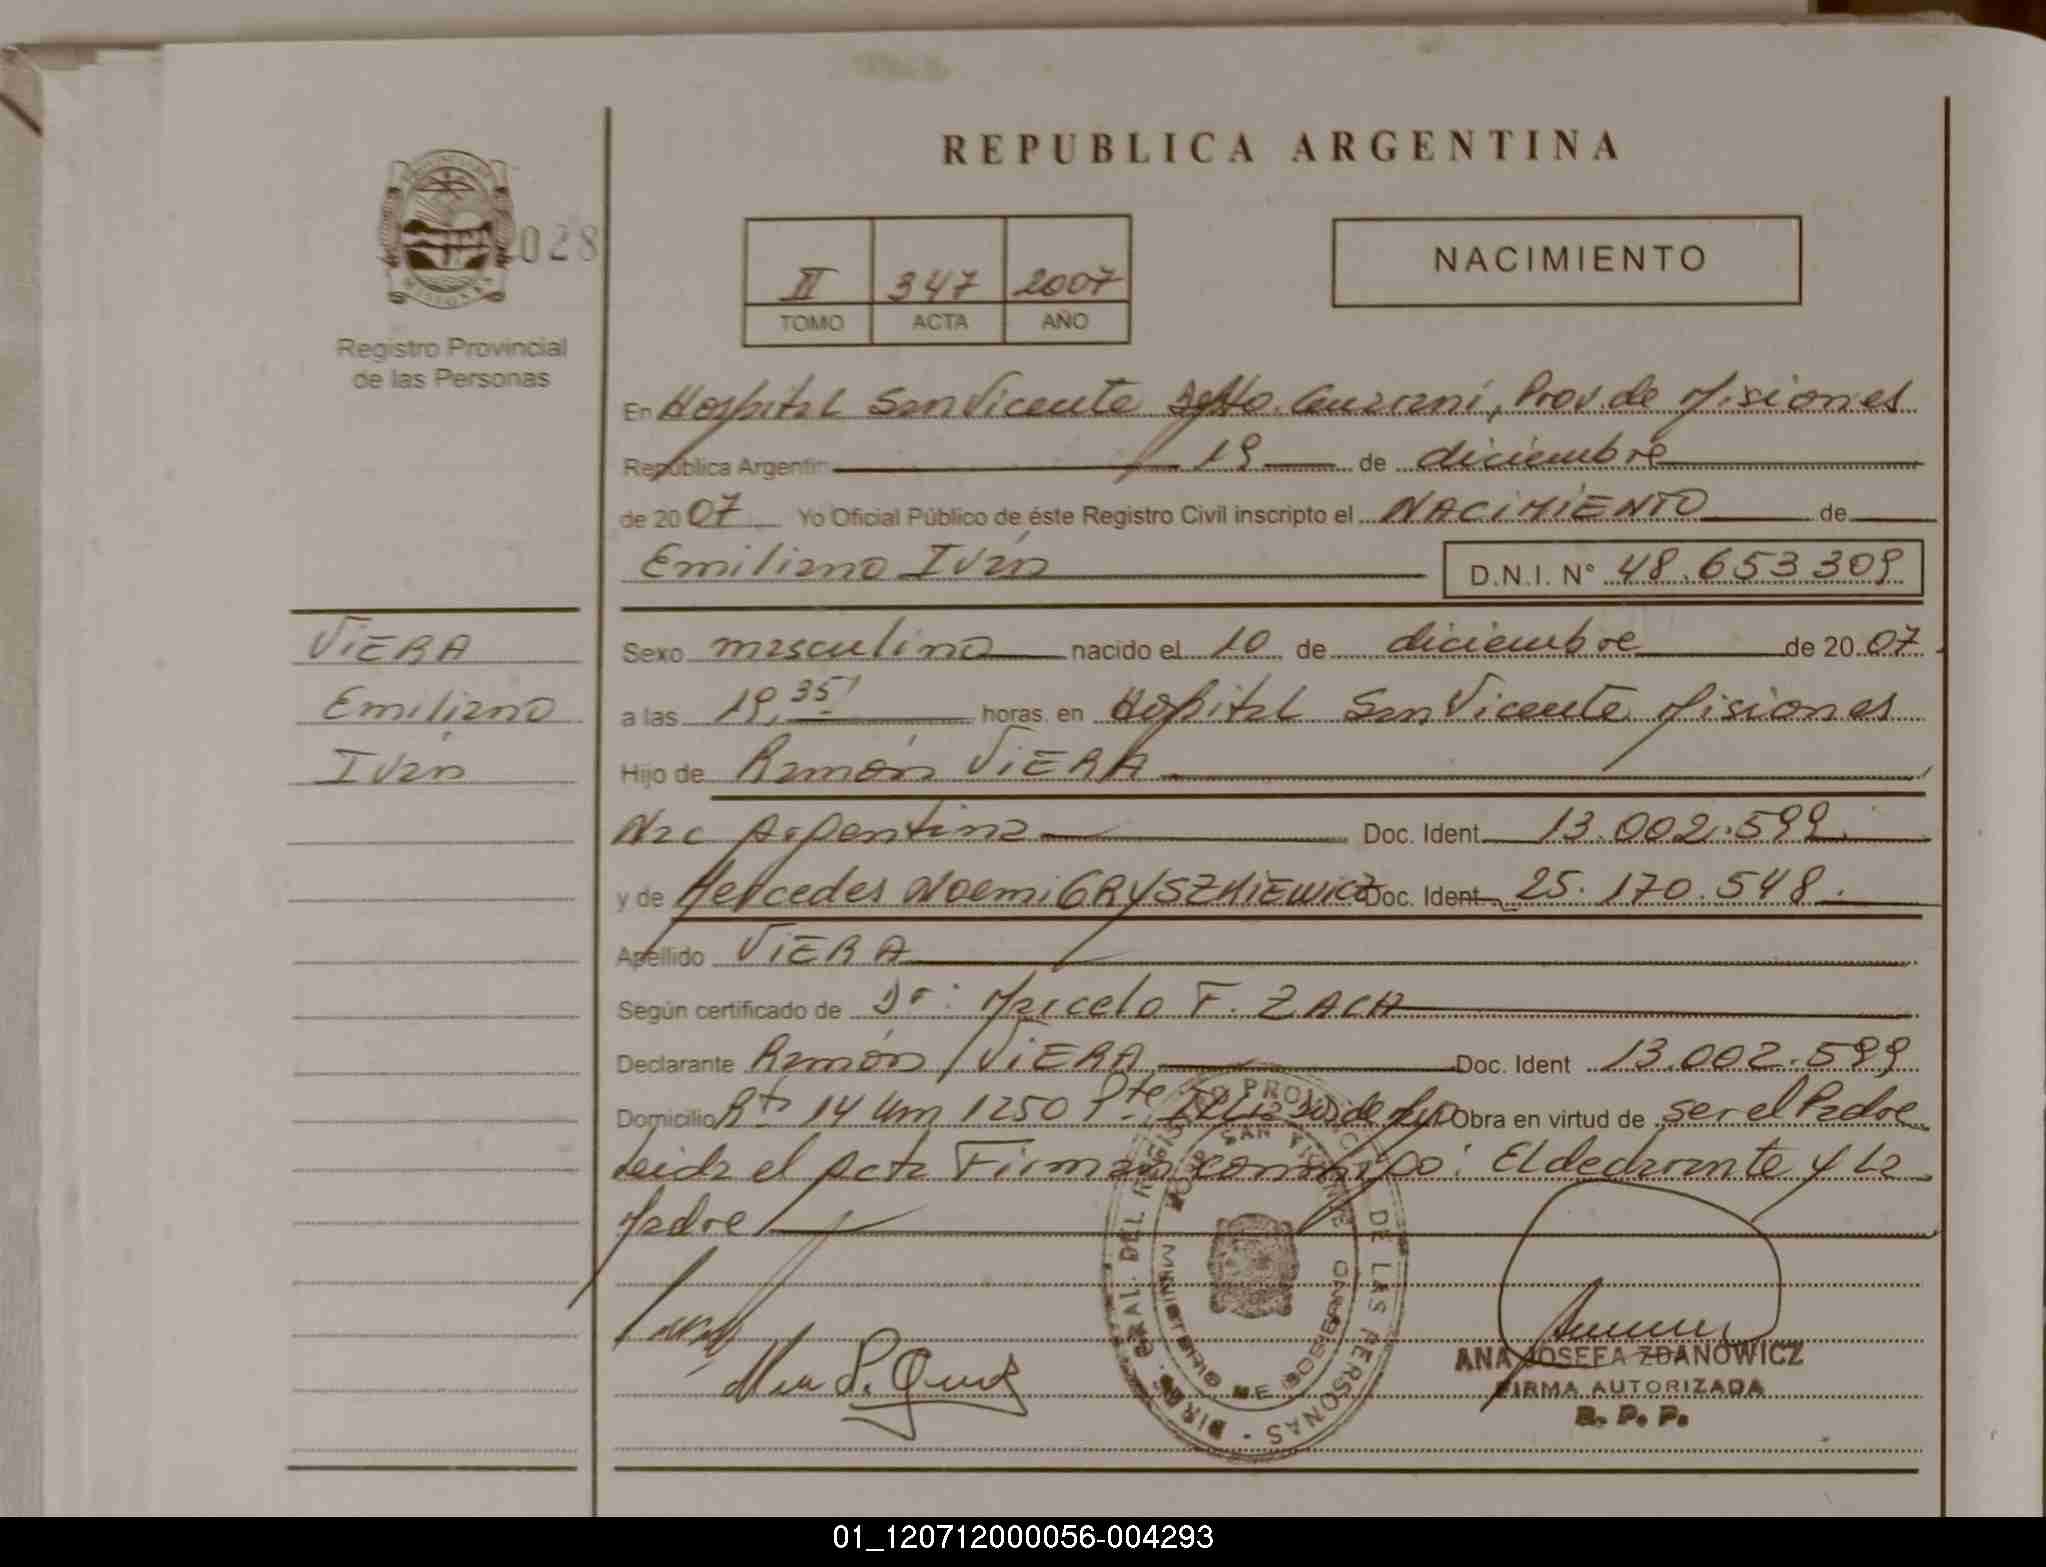 REPUBLICA ARGENTINA
028
NACIMIENTO
II 347 2007
TOMO ACTA AÑO
MISIONES
Registro Provincial
de las Personas
En Hospital San Vicente Dpto. Guaraní, Prov. de Misiones
República Argentina 19 de diciembre
de 2007 Yo Oficial Público de éste Registro Civil inscripto el NACIMIENTO de
Emiliano Iván D.N.I. N° 48.653309
VIERA
Emiliano
Iván
Sexo masculino nacido el 10 de diciembre de 2007
a las 19,35' horas en Hospital San Vicente Misiones
Hijo de Ramón VIERA
Nac Argentina Doc. Ident 13.002.599
y de Mercedes Noemi GRYSZKIEWICZ Doc. Ident 25.170.548
Apellido VIERA
Según certificado de Dr: Marcelo F. ZACH
Declarante Ramón VIERA Doc. Ident 13.002.599
Domicilio Rta 14 Km 1250 Pte Obra en virtud de ser el Padre
Leida el Acta Firman conmigo: El declarante y La
Madre
DIR. GRAL. DEL REGISTRO PROVINCIAL DE LAS PERSONAS
HOSP. SAN VICENTE
MINISTERIO DE GOBIERNO
ANA JOSEFA ZDANOWICZ
FIRMA AUTORIZADA
R. P. P.
01_120712000056-004293